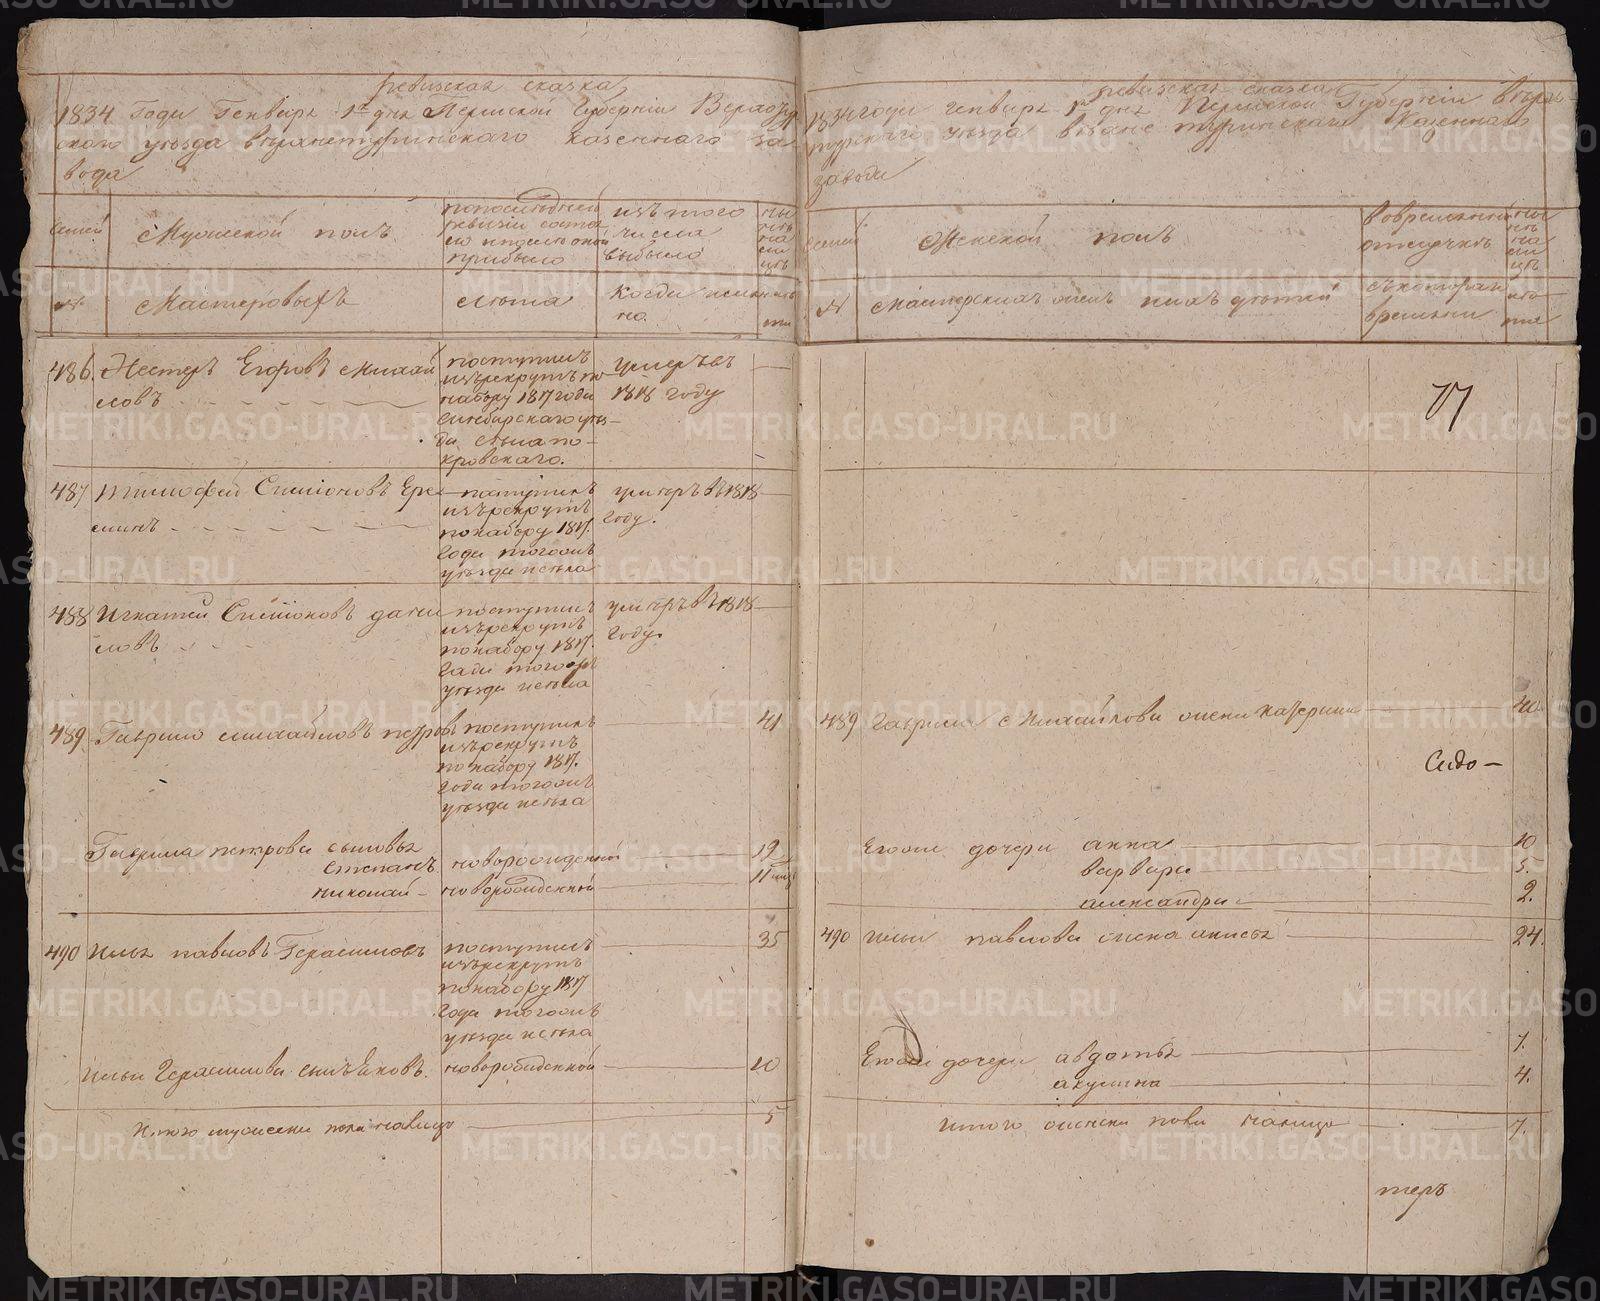 ревизская сказка
1834 Года Генваря 1го дня Пермской Губернии Верхотур
скаго уезда верхнетуринскаго казеннаго за
вода
семей
Мужеской полъ
по последней
ревизии состо
яло и после оной
прибыло
изъ того
числа
выбыло
ны
не
на
ли
цо
№
Мастеровыхъ
Лета
Когда имен
но.
лета
486. Нестеръ Егоровъ Михай
ловъ
поступилъ
изъ рекрутъ по
набору 1817 года
Симбирскаго уез
да села по-
кровскаго.
умеръ въ
1818 году
487 Тимофей Симионовъ Ере
минъ
поступилъ
изъ рекрутъ
по набору 1817.
года тогожъ
уезда и села
умеръ въ 1818
году.
488 Игнатей Симионовъ дани
ловъ
поступилъ
изъ рекрутъ
по набору 1817.
года тогожъ
уезда и села
умеръ въ 1818
году.
489 Гаврило михайловъ петровъ
поступилъ
изъ рекрутъ
по набору 1817.
года тогожъ
уезда и села
41
Гаврила петрова сыновья
степанъ новорожденной 19
николай новорожденной 11
490 Илья павловъ Герасимовъ
поступилъ
изъ рекрутъ
по набору 1817
года тогожъ
уезда и села
35
Ильи Герасимова сынъ Яковъ. новорожденной 10
Итого мужеска пола налицо 5
ревизская сказка
1834 года генваря 1го дня Пермской Губернии Верхо-
турскаго уезда верхне туринскаго Казеннаго
завода
семей
Женской полъ
во временной
отлучке
ны
не
на
ли
цо
№
мастерския жены ихъ детми
съ котораго
времени
лета
77
489 Гаврила Михайлова жена катерина 40
Сидо-
Егожъ дочери анна 10
варвара 5.
александра 2.
490 Ильи павлова жена анисья 24.
Егожъ дочери авдотья 7.
акулина 4.
итого женска пола налицо 7.
теръ
METRIKI.GASO-URAL.RU